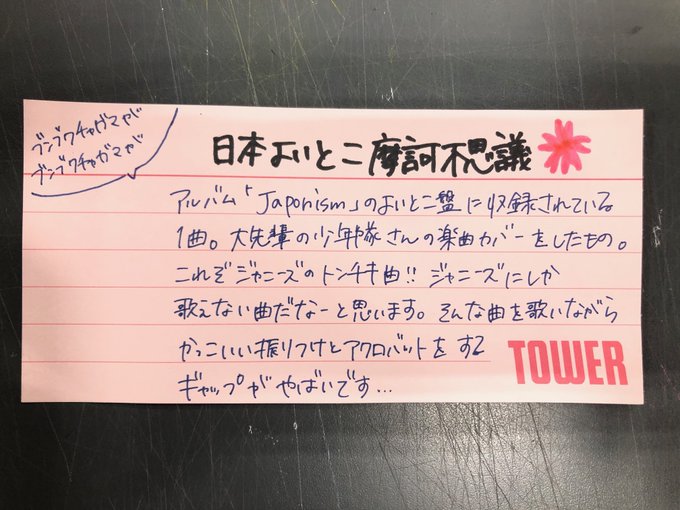 ブンブクチャガマがが
ブンブクチャガマがが
日本よいとこ摩訶不思議
アルバム「Japonism」のよいとこ盤に収録されている
1曲。大先輩の少年隊さんの楽曲カバーをしたもの。
これぞジャニーズのトンチキ曲!! ジャニーズにしか
歌えない曲だなーと思います。そんな曲を歌いながら
かっこいい振りつけとアクロバットをする
ギャップがやばいです…
TOWER